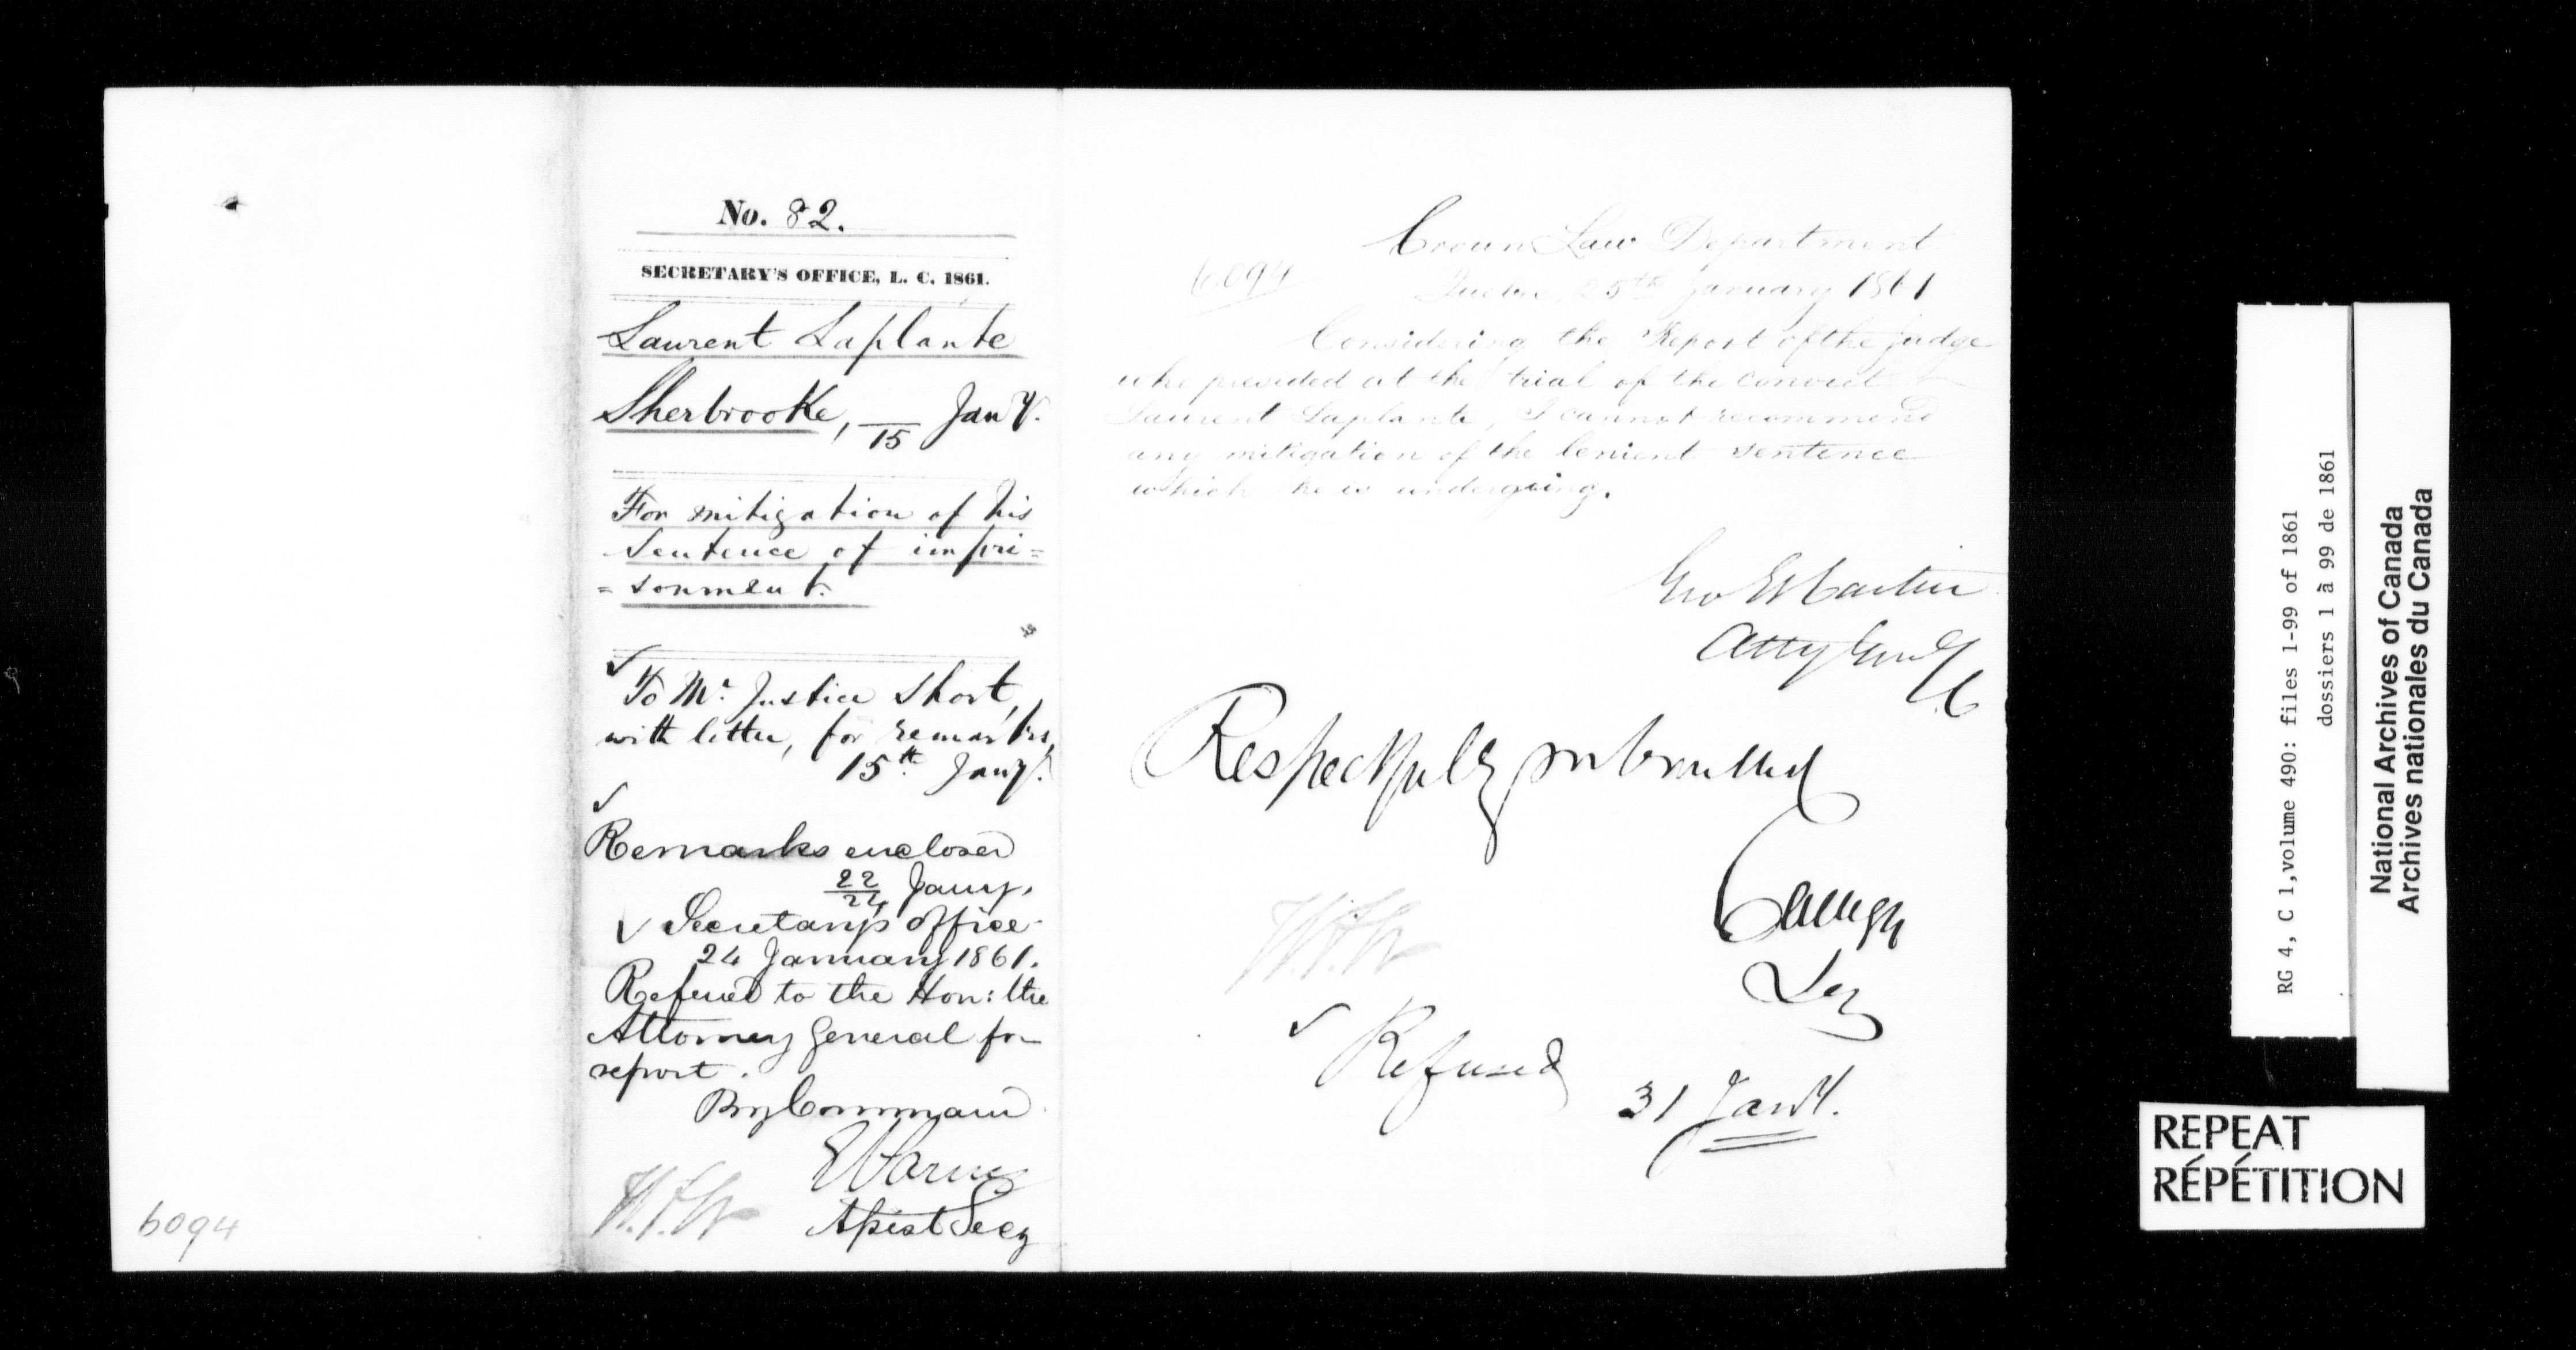 No. 82.
SECRETARY'S OFFICE, L. C. 1861.
Laurent Laplante
Sherbrooke, 15 Jany.
For mitigation of his
sentence of impri=
=sonment.
To Mr. Justice Short,
with letter, for remarks,
15th Jany.
Remarks enclosed
22/24 Jany.
Secretary's office
24 January 1861.
Referred to the Hon: the
Attorney General for
report.
By Command
Asist Secy
6094
Crown Law Department
6094
Quebec 25th January 1861
Considering the Report of the Judge
who presided at the trial of the convict
Laurent Laplante, I cannot recommend
any mitigation of the lenient sentence
which he is undergoing.
Atty Genl
Respectfully submitted
Refused
31 Jany.
RG 4, C 1, volume 490: files 1-99 of 1861
dossiers 1 à 99 de 1861
National Archives of Canada
Archives nationales du Canada
REPEAT
RÉPÉTITION